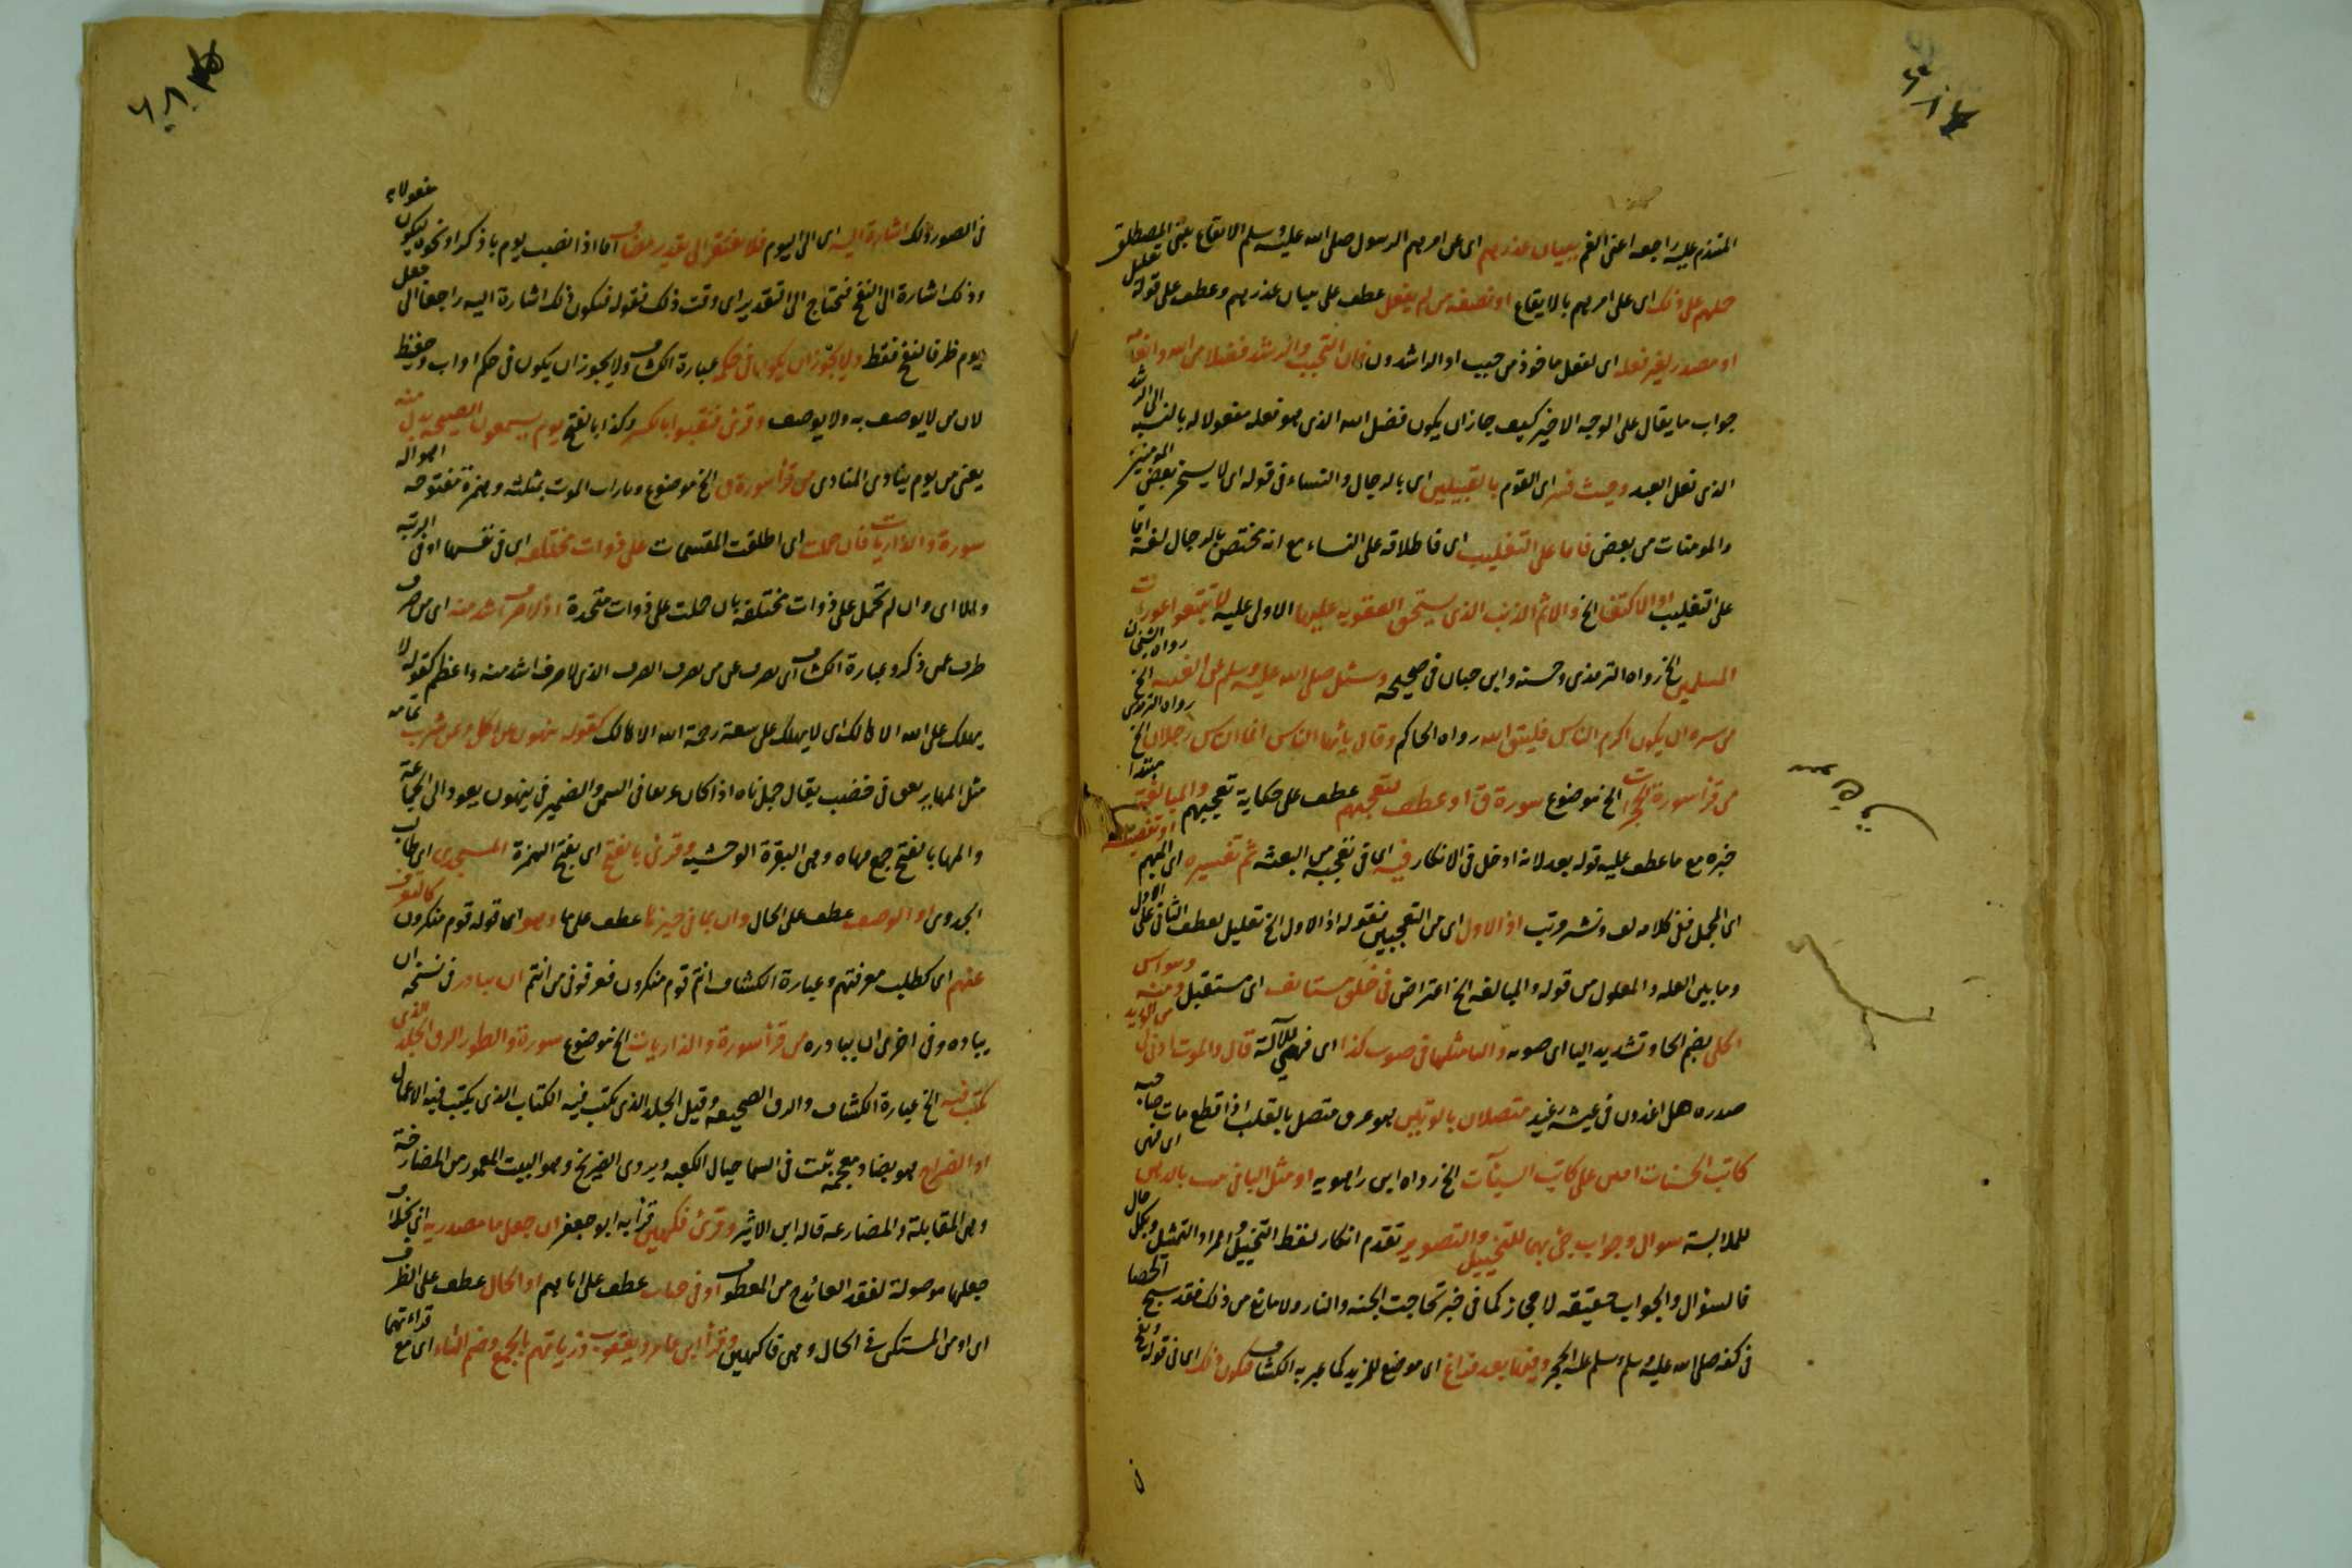 المتندم عليه راجعه اعنى الغم ببيان عذرهم اى عن امرهم الرسول صلى الله عليه وسلم الايقاع ببنى المصطلق
حملهم على ذلك اى على امرهم بالايقاع او بصفة من لم يفعل عطف على بيان عذرهم وعطف على قوله تعليل
او مصدر لغير فعله اى لفعل ماخوذ من حبب او الراشدون فان التحبيب والرشد فضلا من الله وانعام
جواب ما يقال على الوجه الاخير كيف جاز ان يكون فضل الله الذى هو فعله مفعولا له بالنسبة الى الرشد
الذى فعل العبد وحيث فسر اى القوم بالقبيلين اى بالرجال والنساء فى قوله اى لا يسخر بعض المومنين
والمومنات من بعض فاما على التغليب اى فاطلاقه على النساء مع انه مختص بالرجال لغة اما
على التغليب او الاكتفا الخ والاثم الذنب الذى يستحق العقوبه عليها الاولى عليه لا تتبعوا عورات
المسلمين الخ رواه الترمذى وحسنه وابن حبان فى صحيحه وسئل صلى الله عليه وسلم عن الغيبه الخ رواه الشيخان
من سره ان يكون اكرم الناس فليتق الله رواه الحاكم وقال يايها الناس انما الناس رجلان الخ رواه الترمذى
من قرأ سورة الحجرات الخ موضوع سورة ق او عطف لتعجبهم عطف على حكاية تعجبهم والمبالغة مبتدا
خبره مع ما عطف عليه قوله بعد لانه ادخل فى الانكار فيه اى فى تعجبهم من البعثه ثم تفسيره اى المبهم او تفصيله
اى المجمل ففى كلامه لف ونشر مرتب اذ الاول اى من التعجبين فقوله اذ الاول الخ تعليل لعطف الثانى على الاول
وما بين العله والمعلول من قوله والمبالغه الخ اعتراض فى خلق مستانف اى مستقبل ومنه وسواس
الحلى بضم الحا وتشديد اليا اى صوته والبا مثلها فى صوت كذا اى فهى للآلة قال والموت ادنى لى من الوريد
صدره هل اغدون فى عيشة رغيد متصلان بالوتين هو عرق متصل بالقلب اذا قطع مات صاحبه
كاتب الحسنات امين على كاتب السيآت الخ رواه ابن راهويه او مثل البا فى تنبت بالدهن اى فهى
للملابسة سوال وجواب جئ بهما للتخييل والتصوير تقدم انكار لفظ التخييل والمراد التمثيل وبكل حال
فالسؤال والجواب حقيقه لا مجاز كما فى خبر تحاجت الجنه والنار ولا مانع من ذلك فقد سبح الحصا
فى كفه صلى الله عليه وسلم وسلم عليه الحجر وفيها بعد فراغ اى موضع للمزيد كما عبر به الكشاف فيكون ذلك اى فى قوله ونفخ
فى الصور ذلك اشارة اليه اى الى اليوم فلا يفتقر الى تقدير مضاف اما اذا نصب يوم باذكر او نحوه ليكون مفعولا به
وذلك اشارة الى النفخ فتحتاج الى التقدير اى وقت ذلك فقوله فيكون ذلك اشارة اليه راجعا الى جعل
يوم ظرفا لنفخ فقط ولا يجوز ان يكون فى حكم عبارة الكشاف ولا يجوز ان يكون فى حكم اواب وحفيظ
لان من لا يوصف به ولا يوصف وقرئ فنقبوا بالكسر وكذا بالفتح يوم يسمعون الصيحة بدل منه
يعنى من يوم ينادى المنادى من قرأ سورة ق الخ موضوع وتارات الموت بمثلثه وهمزة مفتوحه اهواله
سورة والذاريات فان حملت اى اطلقت المقسمات على ذوات مختلفه اى فى نفسها او فى الرتبه
والا اى وان لم تحمل على ذوات مختلفة بان حملت على ذوات متحدة اذ لا صرف اشد منه اى من صرف
صرف عمن ذكر وعبارة الكشاف اى يصرف عنه من صرف الصرف الذى لا صرف اشد منه واعظم كقوله لا
يهلك على الله الا هالك اى لا يهلك على سعة رحمة الله الا هالك كقوله ينهون عن اكل وعن شرب تمامه
مثل المها يرتعن فى خصب يقال جمل ناه اذا كان عريقا فى السمن والضمير فى ينهون يعود الى الجماعة
والمها بالفتح جمع مهاه وهى البقرة الوحشيه وقرئ بالفتح اى بفتح الهمزة المستجدى اى طالب
الجدوى او الوصف عطف على الحال وان بما فى حيزها عطف على ما وهو اى قوله قوم منكرون كالتعرف
عنهم اى كطلب معرفتهم وعبارة الكشاف انتم قوم منكرون فعرفونى من انتم ان يبادر فى نسخه ان
يباده وفى اخرى ان يبادره من قرأ سورة والذاريات الخ موضوع سورة والطور الرق الجلد الذى
يكتب فيه الخ عبارة الكشاف والرق الصحيفه وقيل الجلد الذى يكتب فيه الكتاب الذى يكتب فيه الاعمال
او الضراح هو بضاد معجمة بيت فى السما حيال الكعبه ويروى الضريح وهو البيت المعمور من المضارحة
وهى المقابلة والمضارعه قاله ابن الاثير وقرئ فكهين قرأ به ابو جعفر ان جعل ما مصدرية اى بخلاف
جعلها موصولة لفقد العائد من المعطوف او فى جنات عطف على اتاهم او الحال عطف على الظرف
اى او من المستكن فى الحال وهى فاكهين وقرأ ابن عامر ويعقوب ذرياتهم بالجمع وضم التاء اى مع قراءتهما